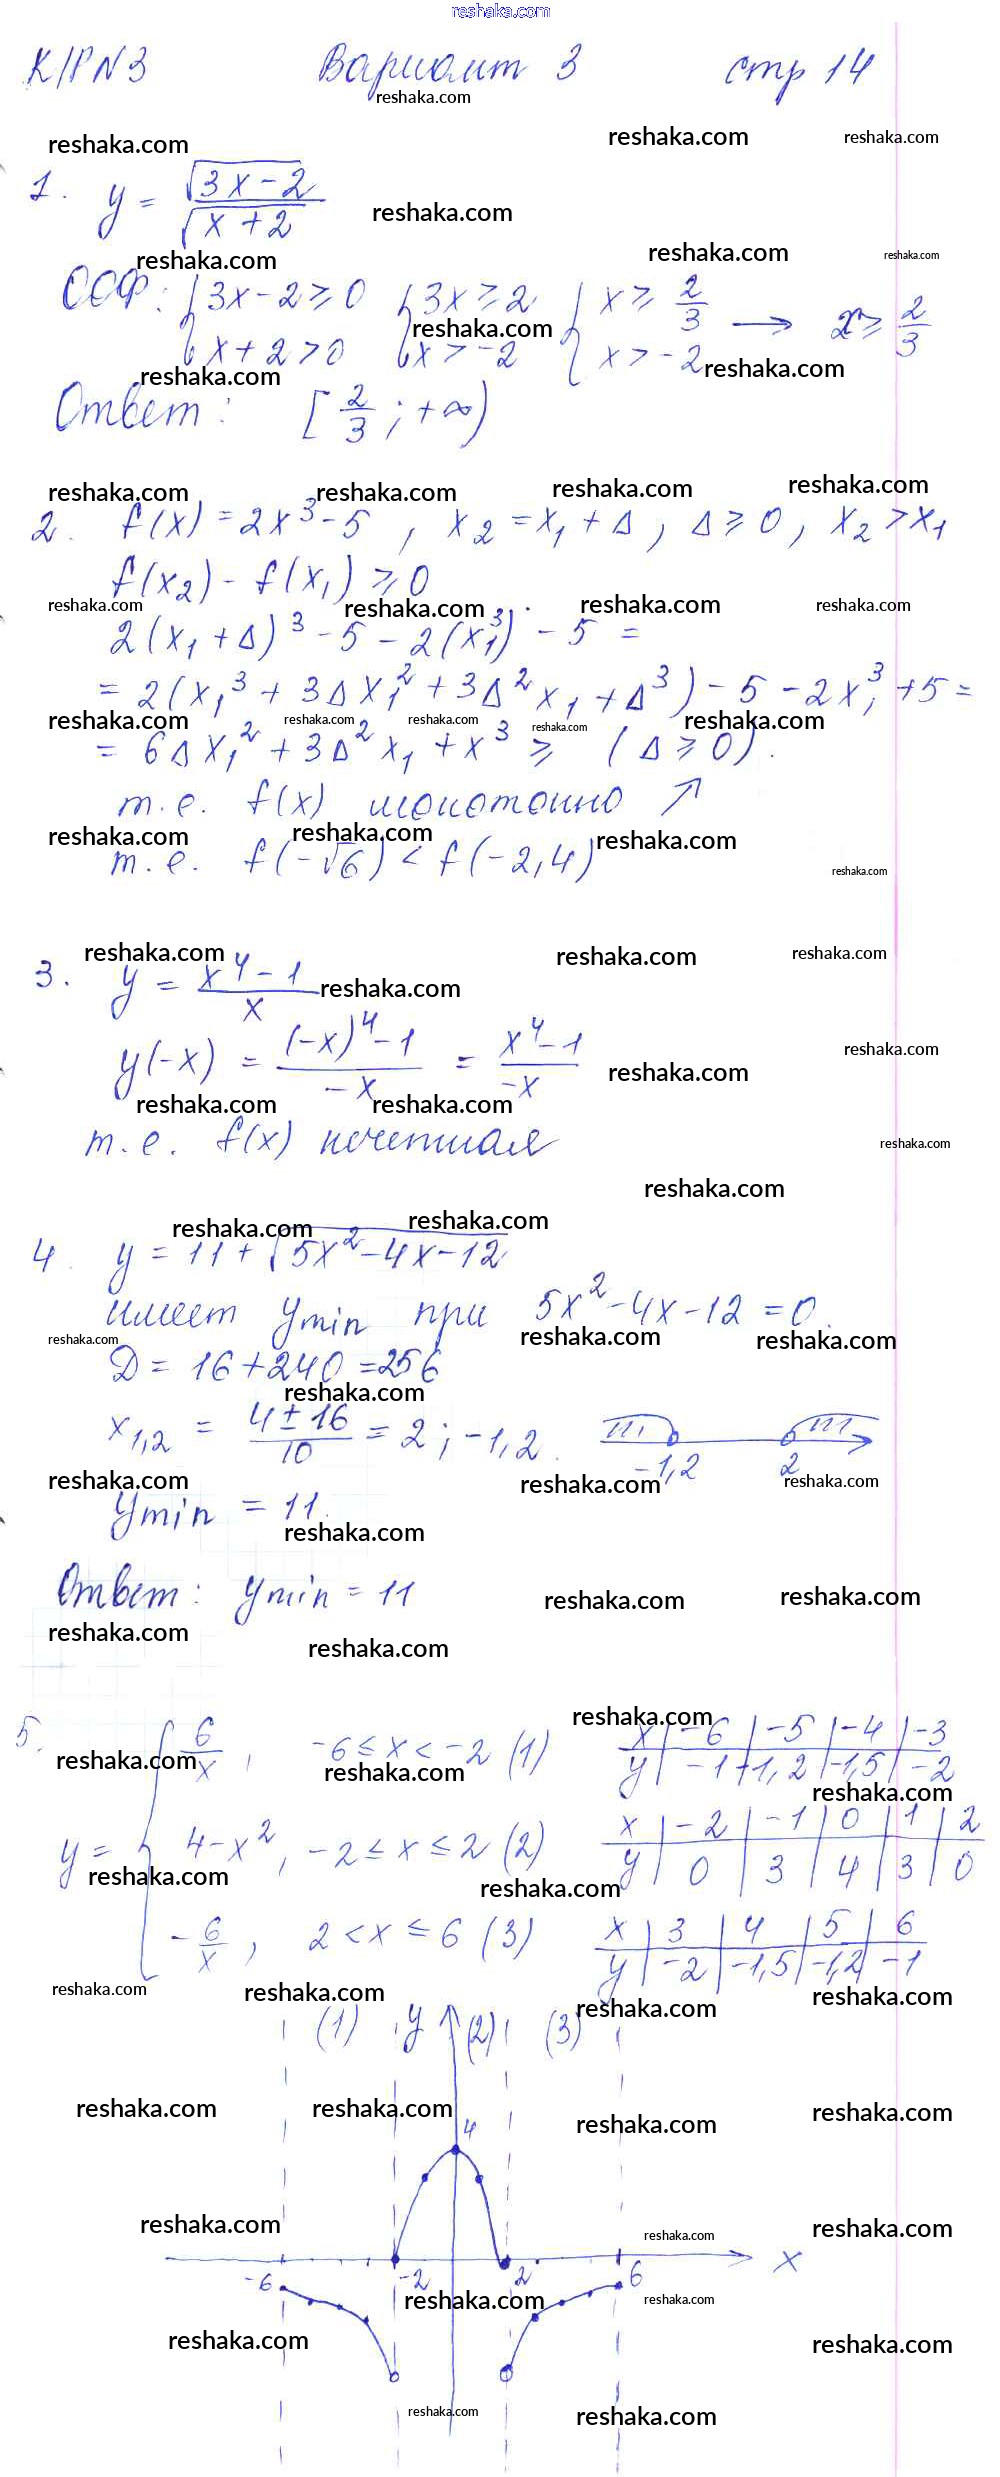 reshaka.com
К/Р N3 Вариант 3 стр 14
1. y = √(3x-2) / √(x+2)
ООФ: { 3x-2 ≥ 0 { 3x ≥ 2 { x ≥ 2/3 → x ≥ 2/3
x+2 > 0 x > -2 x > -2
Ответ: [2/3; +∞)
2. f(x) = 2x³-5, x₂ = x₁ + Δ, Δ ≥ 0, x₂ > x₁
f(x₂) - f(x₁) ≥ 0
2(x₁+Δ)³ - 5 - 2(x₁³) - 5 =
= 2(x₁³ + 3Δx₁² + 3Δ²x₁ + Δ³) - 5 - 2x₁³ + 5 =
= 6Δx₁² + 3Δ²x₁ + x³ ≥ (Δ ≥ 0).
т.е. f(x) монотонно ↗
т.е. f(-√6) < f(-2,4)
3. y = (x⁴-1)/x
y(-x) = ((-x)⁴-1)/(-x) = (x⁴-1)/(-x)
т.е. f(x) нечетная
4. y = 11 + √(5x²-4x-12)
имеет ymin при 5x²-4x-12 = 0.
Д = 16+240 = 256
x₁,₂ = (4±16)/10 = 2; -1,2. -1,2 2
ymin = 11.
Ответ: ymin = 11
5. 6/x, -6 ≤ x < -2 (1) x | -6 | -5 | -4 | -3
y | -1 | -1,2 | -1,5 | -2
y = { 4-x², -2 ≤ x ≤ 2 (2) x | -2 | -1 | 0 | 1 | 2
y | 0 | 3 | 4 | 3 | 0
-6/x, 2 < x ≤ 6 (3) x | 3 | 4 | 5 | 6
y | -2 | -1,5 | -1,2 | -1
(1) y (2) (3)
4
-6 -2 2 6 x